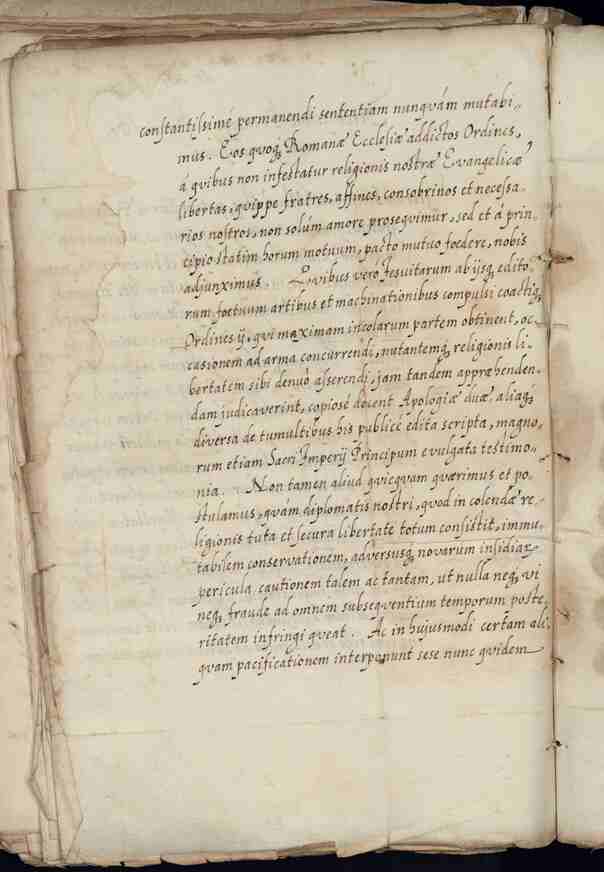 constantissimé permanendi sententiam nunqvám mutabi,,
mus. Eos qvoq; Romanæ Ecclesiæ addictos Ordines,
á qvibus non infestatur religionis nostræ Evangelicæ
libertas, qvippe fratres, affines, consobrinos et necessa,,
rios nostros, non solúm amore proseqvimur, sed et á prin,,
cipio statim horum motuum, pacto mutuo foedere, nobis
adjunximus. Qvibus veró Jesuitarum ab ijsq; edito,,
rum foetuum artibus et machinationibus compulsi coactiq;
Ordines ij, qvi maximam incolarum partem obtinent, oc,,
casionem ad arma concurrendi, nutantemq; religionis li,,
bertatem sibi denuó asserendi, jam tandem appræhenden,,
dam judicaverint, copiosé docent Apologiæ duæ, aliaq;
diversa de tumultibus his publicé edita scripta, magno,,
rum etiam Sacri Imperij Principum evulgata testimo,,
nia. Non tamen aliud qvicqvam qværimus et po,,
stulamus, qvám diplomatis nostri, qvod in colendæ re,,
ligionis tuta et secura libertate totum consistit, immu,,
tabilem conservationem, adversusq; novarum insidiar
pericula, cautionem talem ac tantam, ut nulla neq; vi
neq; fraude ad omnem subseqventium temporum poste,,
ritatem infringi qveat. Ac in hujusmodi certam ali,,
qvam pacificationem interponunt sese nunc qvidem